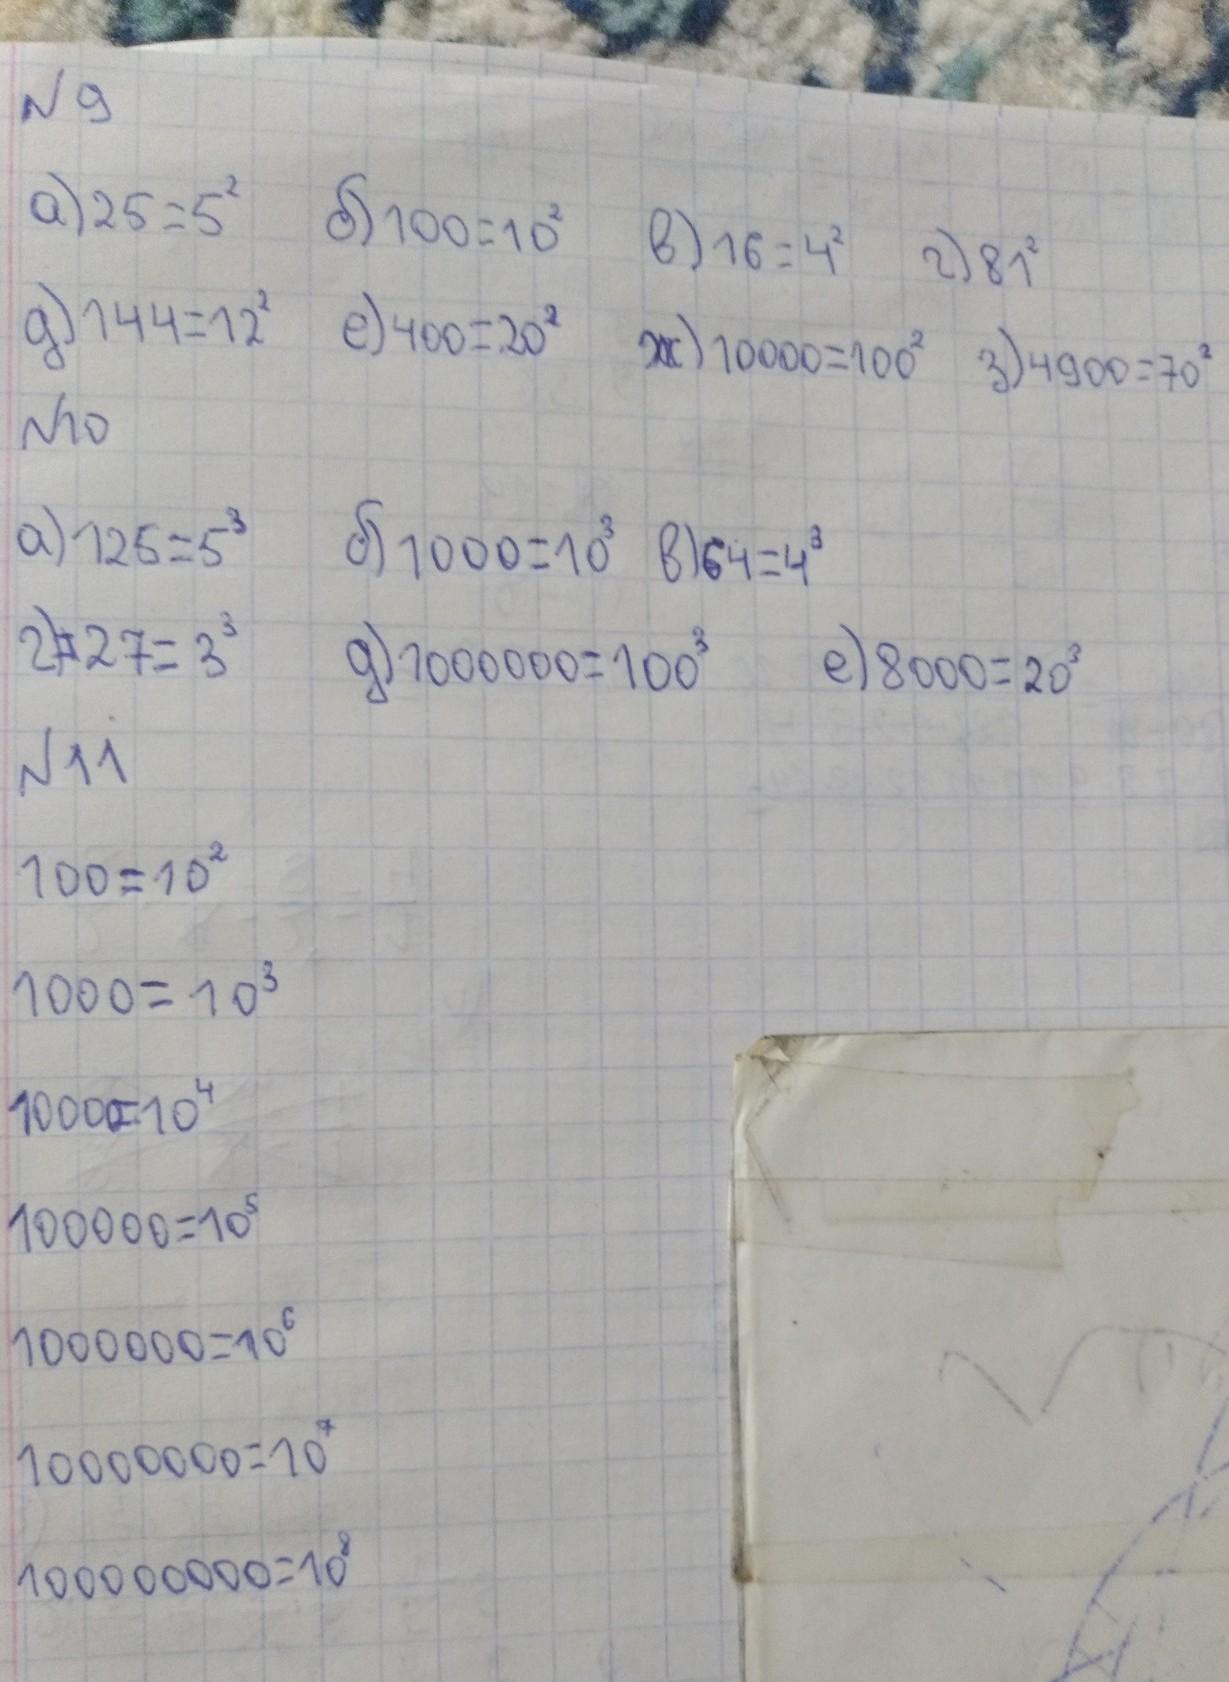 №9
а) 25=5² б) 100=10² в) 16=4² г) 81²
д) 144=12² е) 400=20² ж) 10000=100² з) 4900=70²
№10
а) 125=5³ б) 1000=10³ в) 64=4³
г) 27=3³ д) 1000000=100³ е) 8000=20³
№11
100=10²
1000=10³
10000=10⁴
100000=10⁵
1000000=10⁶
10000000=10⁷
100000000=10⁸